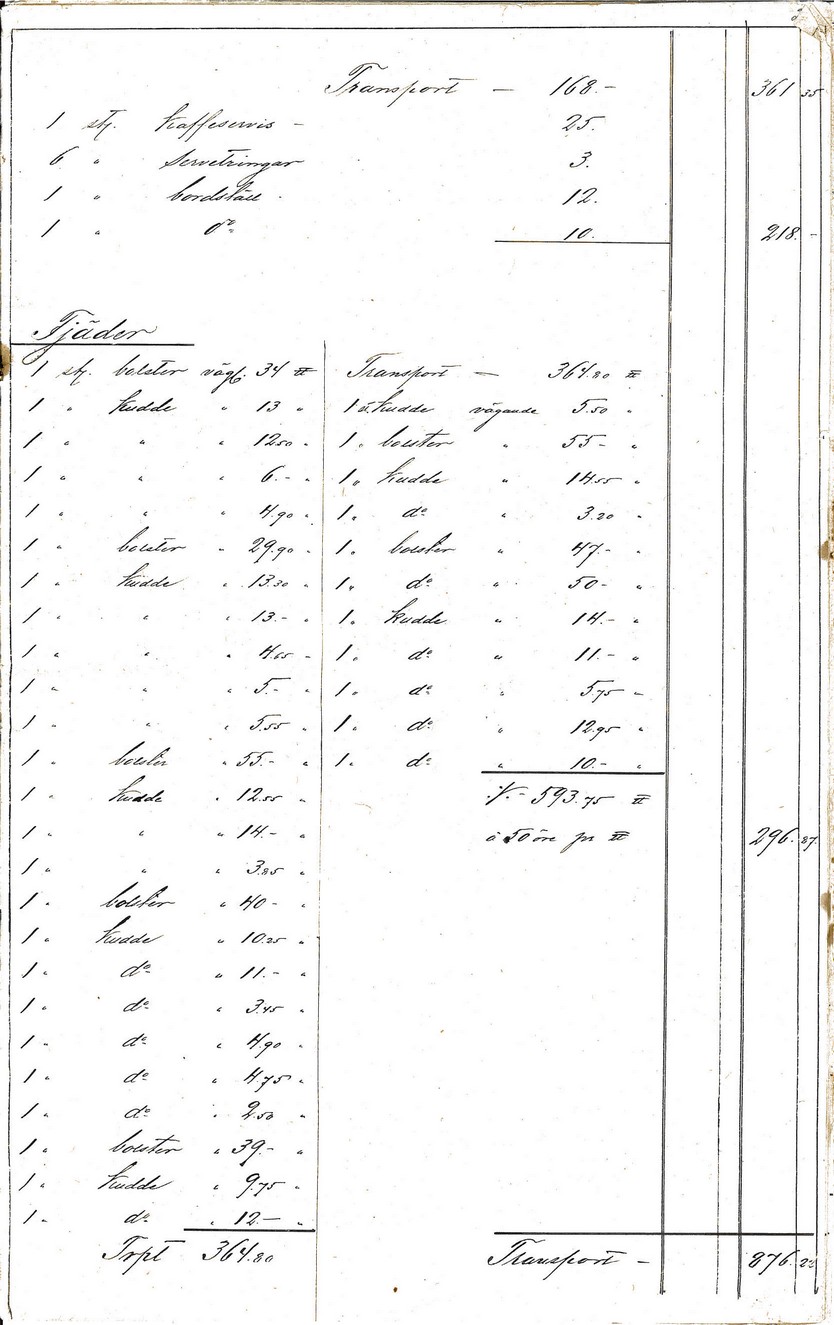 Transport — 168.- 361 55
1 stÿ. Kaffeservis - 25.
6 " Servetringar 3.
1 " bordställ - 12.
1 " do 10. 218.-
Tjäder
1 stÿ. bolster vägl. 34 ℔
1 " Kudde " 13 "
1 " " " 12.50 "
1 " " " 6.- "
1 " " " 4.90 "
1 " bolster " 29.90 "
1 " Kudde " 13.30 "
1 " " " 13.- "
1 " " " 4.65 -
1 " " " 5.- "
1 " " " 5.55 "
1 " bolster " 55.- "
1 " Kudde " 12.55 "
1 " " " 14.- "
1 " " " 3.85 "
1 " bolster " 40- "
1 " Kudde " 10.25 "
1 " do " 11.- "
1 " do " 3.45 "
1 " do " 4.90 "
1 " do " 4.75 "
1 " do " 2.50 "
1 " bolster " 39.- "
1 " Kudde " 9.75 "
1 " do " 12.— "
Trpt 364.80
Transport — 364.80 ℔
1 st. Kudde vägande 5.50 "
1 " bolster " 55- "
1 " Kudde " 14.55 "
1 " do " 3.20 "
1 " bolster " 47.- "
1 " do " 50- "
1 " Kudde " 14.- "
1 " do " 11.- "
1 " do " 5.75 "
1 " do " 12.95 "
1 " do " 10.- "
./.- 593.75 ℔
à 50 öre pr ℔ 296.87
Transport — 876.22